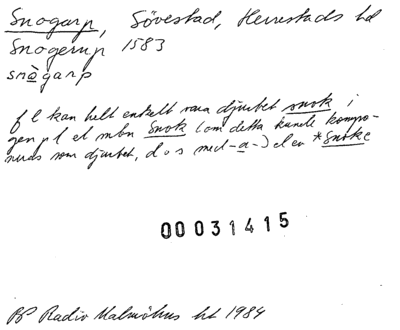 Snogarp, Sövestad, Herrestads hd
Snogerup 1583
snògarp
f l kan helt enkelt vara djurbet snok i
gen pl el mbn Snok (om detta kunde kompo-
neras som djurbet, d v s med -a-) el en *Snoke
00031415
BP Radio Malmöhus ht 1984